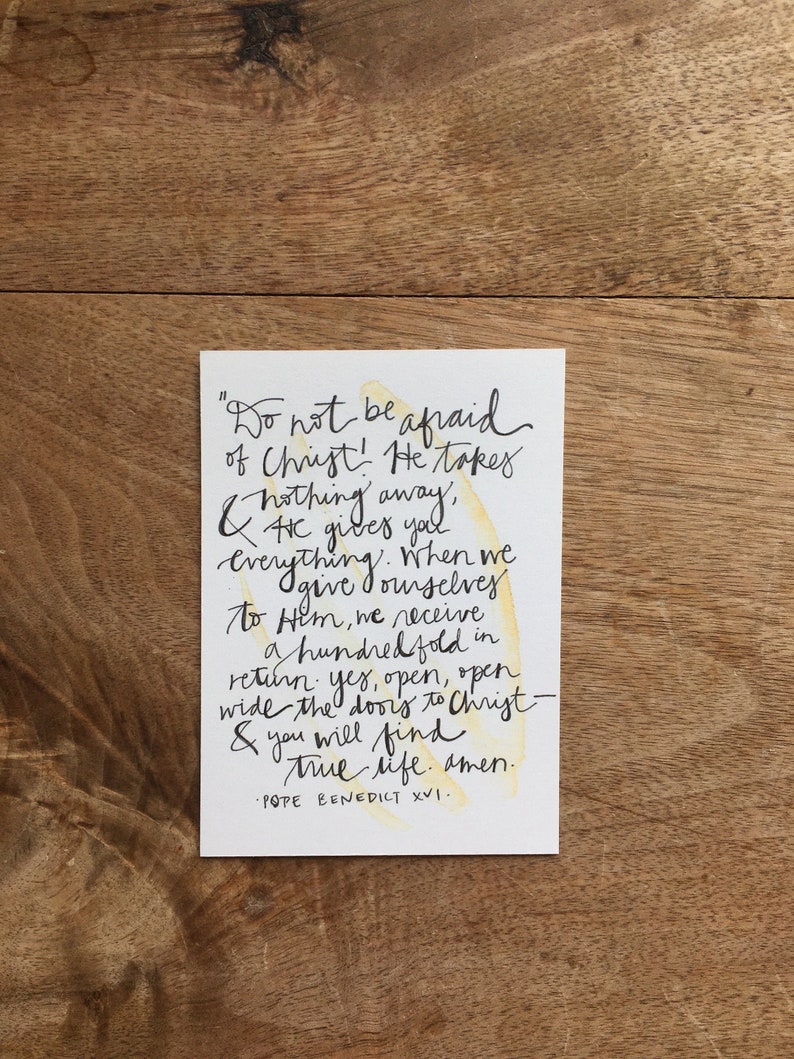 "Do not be afraid
of Christ! He takes
nothing away,
& He gives you
everything. When we
give ourselves
to Him, we receive
a hundredfold in
return. yes, open, open
wide the doors to Christ—
& you will find
true life. amen.
·POPE BENEDICT XVI·